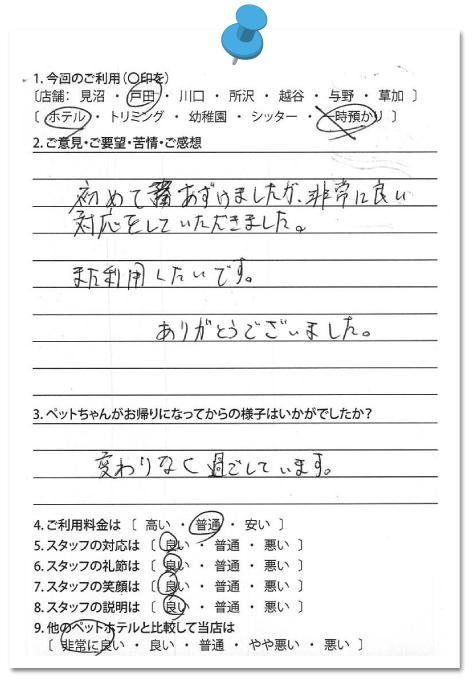 1. 今回のご利用(〇印を)
〔店舗: 見沼 ・ 戸田 ・ 川口 ・ 所沢 ・ 越谷 ・ 与野 ・ 草加 〕
〔 ホテル ・ トリミング ・ 幼稚園 ・ シッター ・ 一時預かり 〕
2. ご意見・ご要望・苦情・ご感想
初めて あずけましたが、非常に良い
対応をしていただきました。
また利用したいです。
ありがとうございました。
3. ペットちゃんがお帰りになってからの様子はいかがでしたか?
変わりなく過ごしています。
4. ご利用料金は 〔 高い ・ 普通 ・ 安い 〕
5. スタッフの対応は 〔 良い ・ 普通 ・ 悪い 〕
6. スタッフの礼節は 〔 良い ・ 普通 ・ 悪い 〕
7. スタッフの笑顔は 〔 良い ・ 普通 ・ 悪い 〕
8. スタッフの説明は 〔 良い ・ 普通 ・ 悪い 〕
9. 他のペットホテルと比較して当店は
〔 非常に良い ・ 良い ・ 普通 ・ やや悪い ・ 悪い 〕